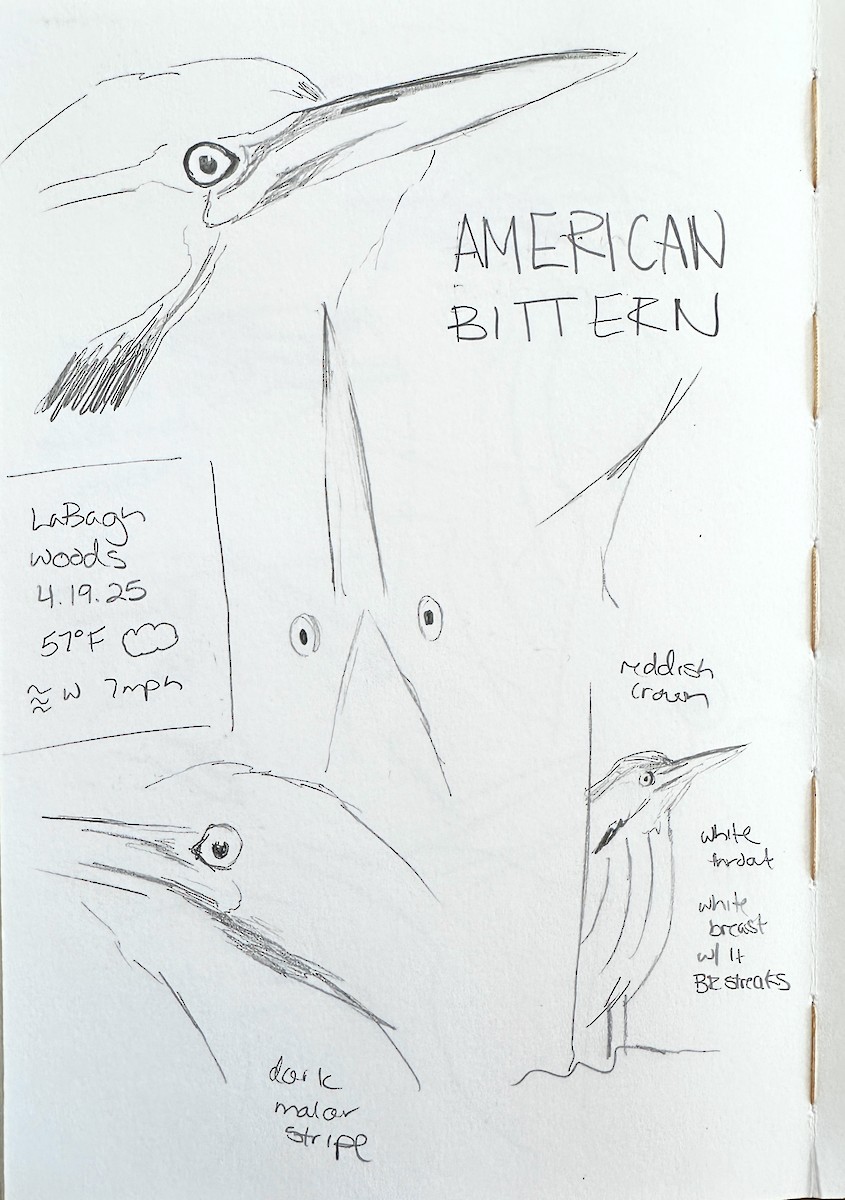 AMERICAN
BITTERN
LaBagh
Woods
4.19.25
57°F
W 7mph
reddish
crown
white
throat
white
breast
w/ lt
BR streaks
dark
malar
stripe